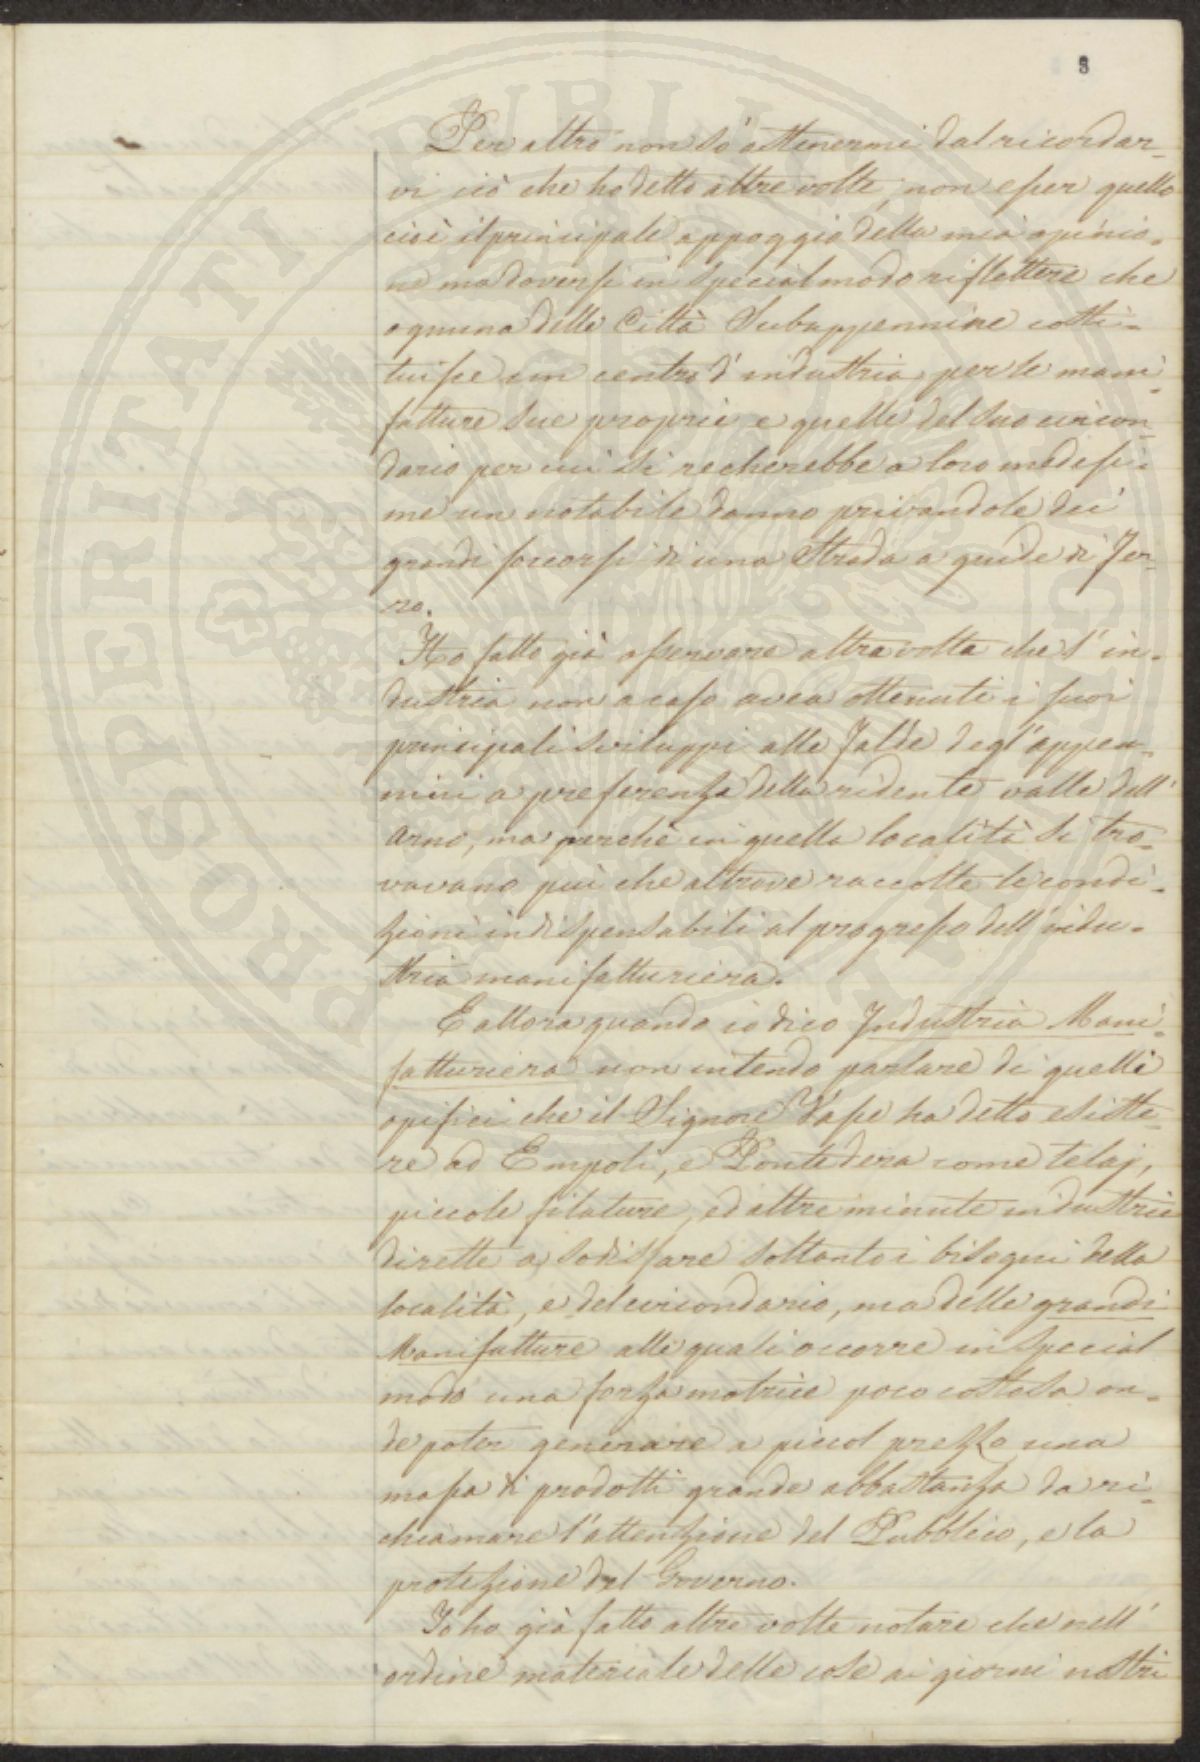 8
Per altro non sò astenermi dal ricordar-
vi ciò che ho detto altre volte, non esser quello
cioè il principale appoggio della mia opinio-
ne ma doversi in special modo riflettere che
ognuna delle Città Subappennine costi-
tuisce un centro d'industria, per le mani-
fatture sue proprie e quelle del suo circon-
dario per cui si recherebbe a loro medesi-
me un notabile danno privandole dei
grandi soccorsi di una Strada a guide di Fer-
ro.
Ho fatto già osservare altra volta che l'in-
dustria non a caso avea ottenuti i suoi
principali sviluppi alle Falde degl'appen-
nini a preferenza della ridente valle dell'
Arno, ma perchè in quella località si tro-
vavano più che altrove raccolte le condi-
zioni indispensabili al progresso dell'indu-
stria manifatturiera.
E allora quando io dico Industria Mani-
fatturiera non intendo parlare di quelli
opifici che il Signore Vase ha detto esiste-
re ad Empoli, e Pontedera come telaj,
piccole filature, ed altre minute industrie
dirette a sodisfare soltanto i bisogni della
località, e del circondario, ma delle grandi
Manifatture alle quali occorre in special
modo una forza motrice poco costosa on-
de poter generare a piccol prezzo una
massa di prodotti grande abbastanza da ri-
chiamare l'attenzione del Pubblico, e la
protezione del Governo.
Io ho già fatto altre volte notare che nell'
ordine materiale delle cose ai giorni nostri
PROSPERITATI PUBLICAE